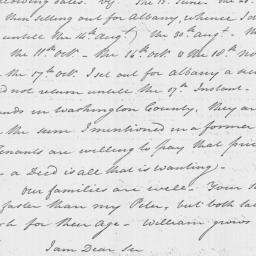 lowing sales. Vy. The 15. June. The 20.
then selling out for Albany, whence I do
untill the 14th Augt.) the 30th augt. the
the 11th octr. the 16th octr & the 18th no
the 17th octr. I set out for albany a sec
did not return untill the 17th Instant.
ands in Washington County, they are
the sum I mentioned in a former
Tenants are willing to pay that price
a Deed is all that is wanting.
our families are well. Your
faster than my Peter, but both
for their Age. William grows
I am Dear Sir